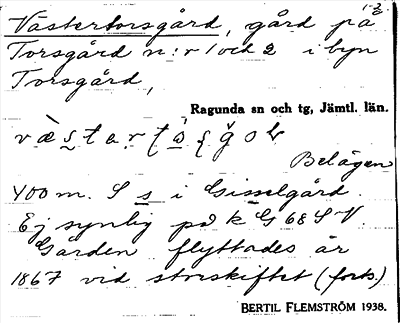 Västertorsgård, gård på
Torsgård n:r 1 och 2 i byn
Torsgård,
Ragunda sn och tg, Jämtl. län.
Belägen
400 m. S s i Gisselgård.
Ej synlig på k G 68 SV
Gården flyttades år
1867 vid storskiftet (forts.)
BERTIL FLEMSTRÖM 1938.